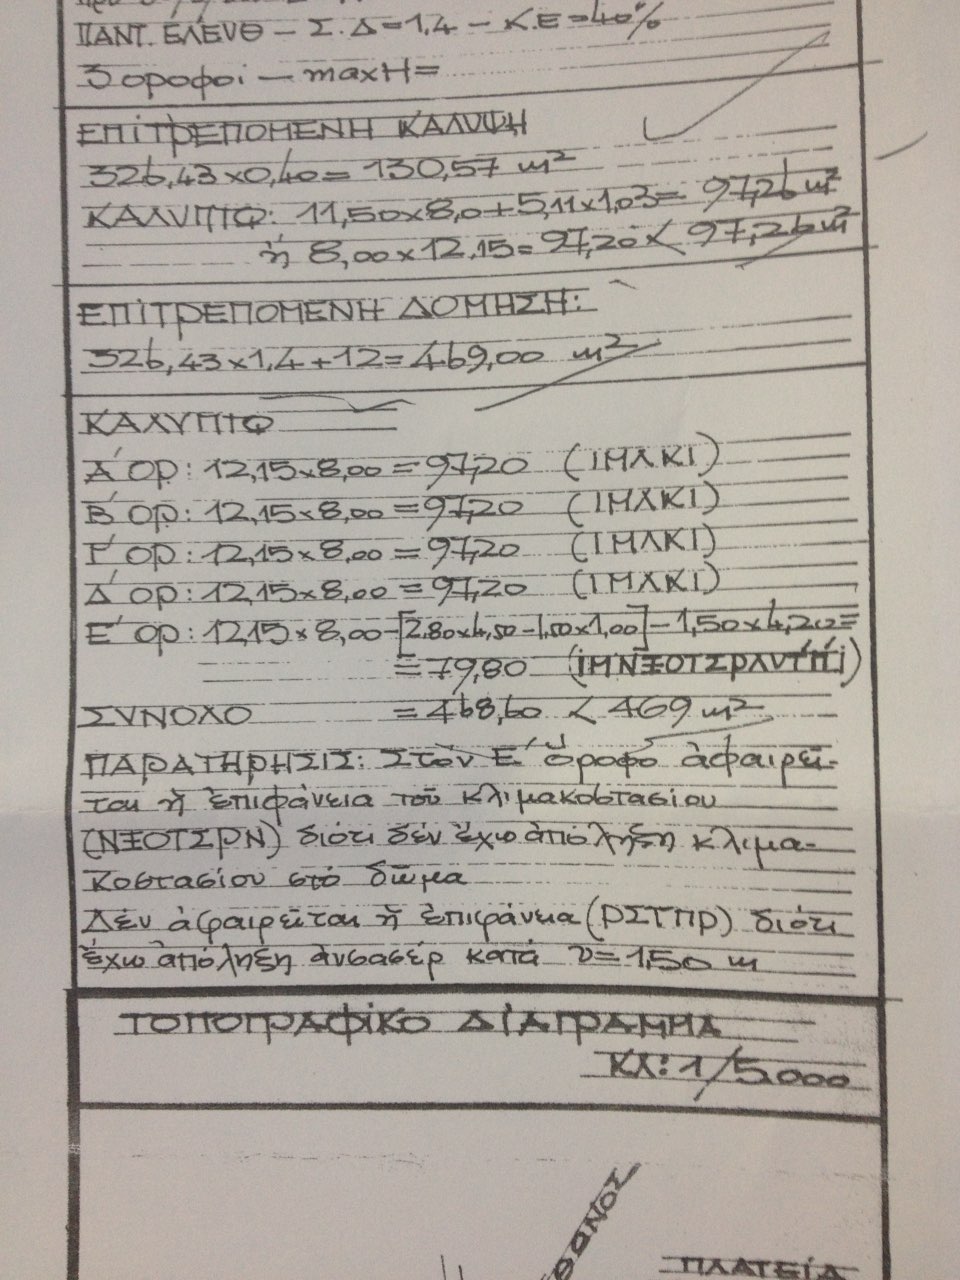 ΠΑΝΤ. ΕΛΕΥΘ – Σ.Δ=1,4 – Κ.Ε=40%
3 οροφοι – maxH=
ΕΠΙΤΡΕΠΟΜΕΝΗ ΚΑΛΥΨΗ
326,43x0,40= 130,57 m²
ΚΑΛΥΠΤΩ: 11,50x8,0+5,11x1,03= 97,26 m²
ή 8,00x12,15= 97,20 < 97,26 m²
ΕΠΙΤΡΕΠΟΜΕΝΗ ΔΟΜΗΣΗ:
326,43x1,4+12= 469,00 m²
ΚΑΛΥΠΤΩ
Α΄ΟΡ: 12,15x8,00=97,20 (ΙΜΛΚΙ)
Β΄ΟΡ: 12,15x8,00=97,20 (ΙΜΛΚΙ)
Γ΄ΟΡ: 12,15x8,00=97,20 (ΙΜΛΚΙ)
Δ΄ΟΡ: 12,15x8,00=97,20 (ΙΜΛΚΙ)
Ε΄ΟΡ: 12,15x8,00-[2.80x4,50-1,50x1,00]-1,50x4,20=
=79,80
ΣΥΝΟΛΟ =468,60 < 469 m²
ΠΑΡΑΤΗΡΗΣΙΣ: Στόν Ε΄ όροφο ἀφαιρεῖ-
ται ἡ ἐπιφάνεια τοῦ κλιμακοστασίου
(ΝΞΟΤΣΡΝ) διότι δέν ἔχω ἀπόληξη κλιμα-
κοστασίου στό δῶμα
Δέν ἀφαιρεῖται ἡ ἐπιφάνεια (ΡΣΤΠΡ) διότι
ἔχω ἀπόληξη ἀνσασέρ κατά υ=1,50 m
ΤΟΠΟΓΡΑΦΙΚΟ ΔΙΑΓΡΑΜΜΑ
ΚΛ: 1/5.000
ΠΛΑΤΕΙΑ